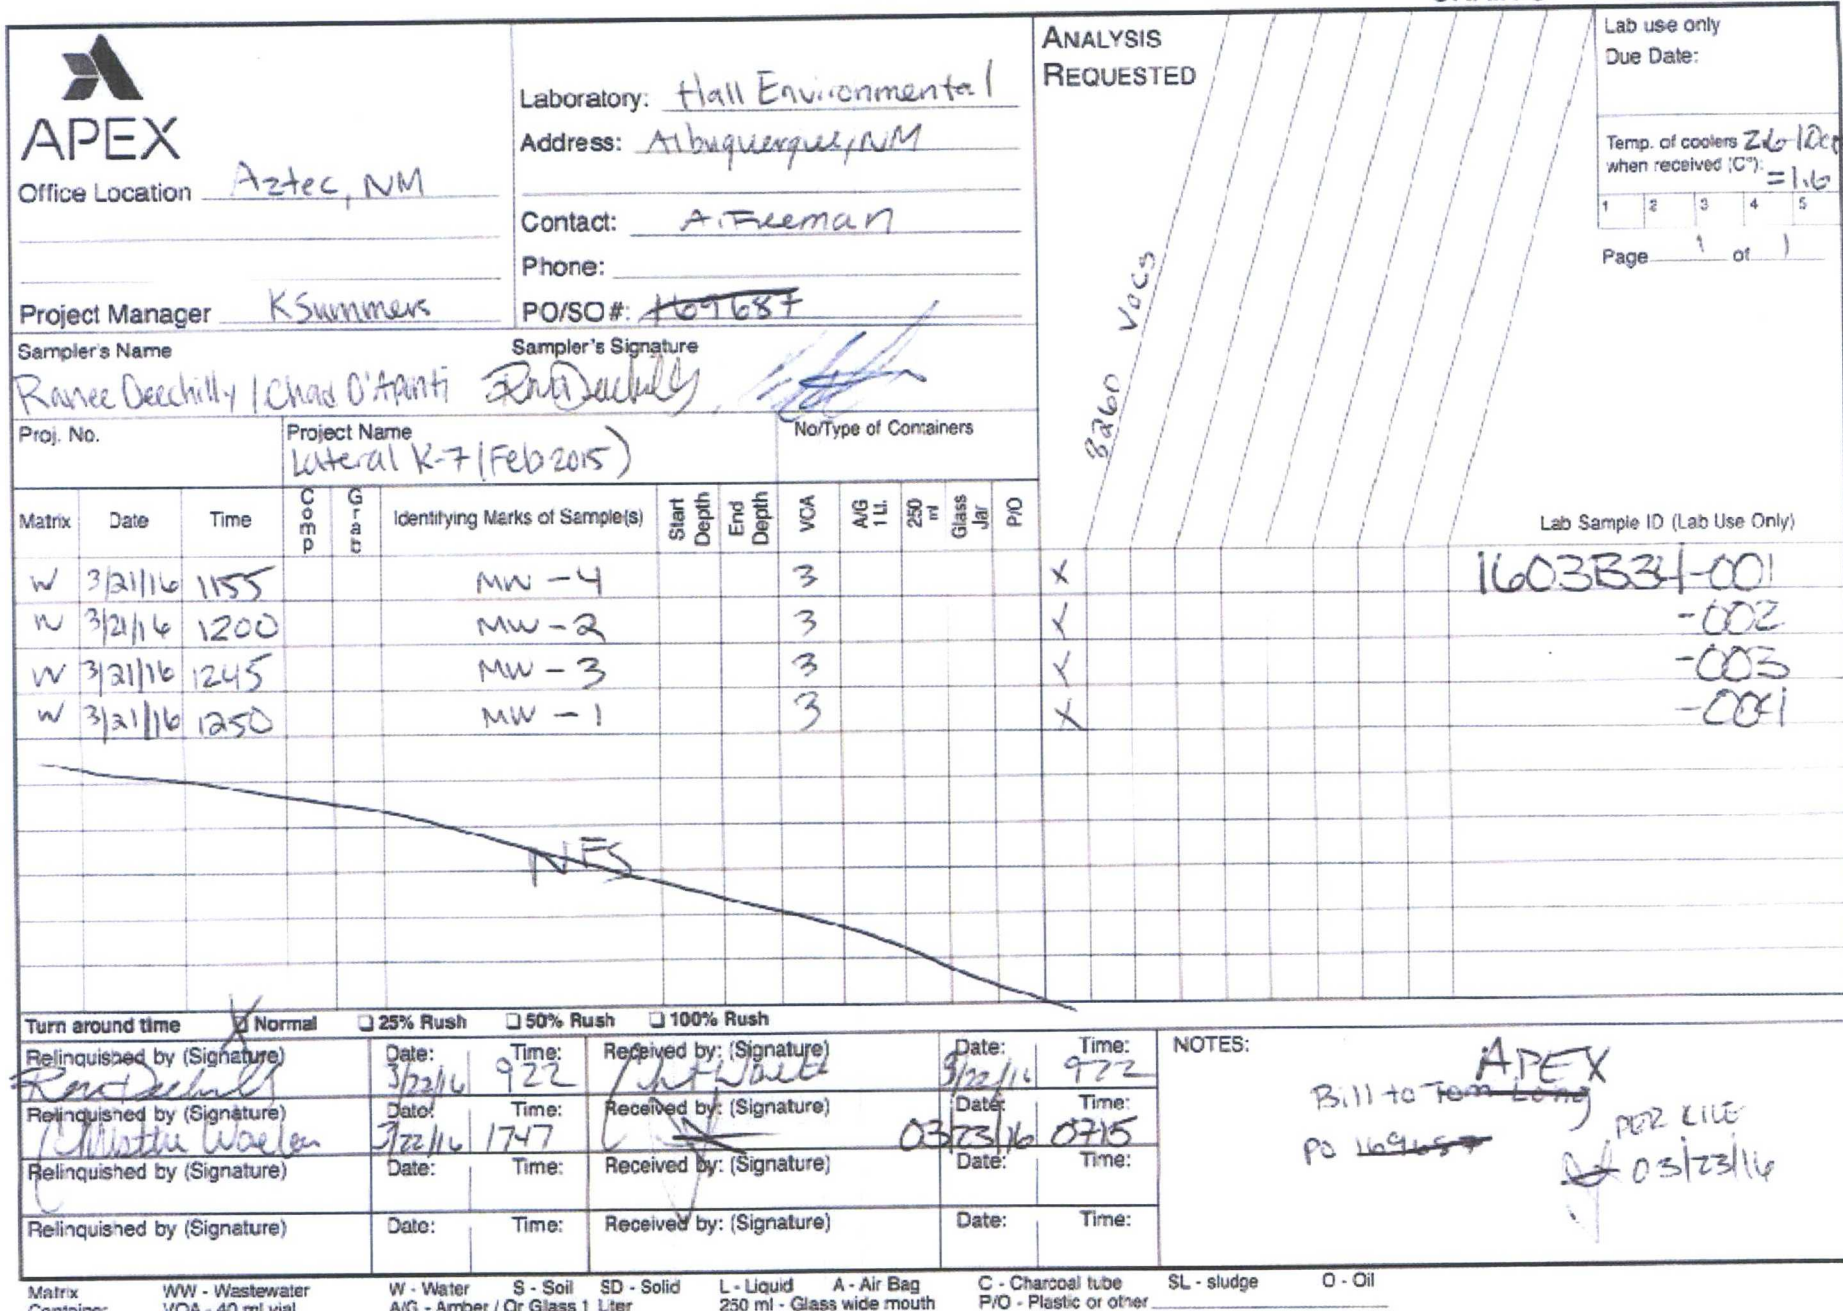 APEX
Office Location Aztec, NM
Project Manager K Summers
Laboratory: Hall Environmental
Address: Albuquerque, NM
Contact: A. Freeman
Phone:
PO/SO #: 169687
ANALYSIS
REQUESTED
8260 VOCs
Lab use only
Due Date:
Temp. of coolers
when received (C°): =1.6
1 2 3 4 5
Page 1 of 1
Sampler's Name
Sampler's Signature
Ranee Deechilly / Chad D'Aponti
Proj. No.
Project Name
Lateral K-7 (Feb 2015)
No/Type of Containers
Matrix Date Time Comp Grab Identifying Marks of Sample(s) Start Depth End Depth VOA A/G 1 Lt. 250 ml Glass Jar P/O Lab Sample ID (Lab Use Only)
W 3/21/16 1155 MW-4 3 X 1603B34-001
W 3/21/16 1200 MW-2 3 X -002
W 3/21/16 1245 MW-3 3 X -003
W 3/21/16 1250 MW-1 3 X -004
NFS
Turn around time Normal 25% Rush 50% Rush 100% Rush
Relinquished by (Signature) Date: Time: Received by: (Signature) Date: Time:
3/22/16 922 3/22/16 922
Relinquished by (Signature) Date: Time: Received by: (Signature) Date: Time:
3/22/16 1747 03/23/16 0715
Relinquished by (Signature) Date: Time: Received by: (Signature) Date: Time:
Relinquished by (Signature) Date: Time: Received by: (Signature) Date: Time:
NOTES:
APEX
Bill to Tom Long
PO 169687
PER KILE
03/23/16
Matrix WW - Wastewater W - Water S - Soil SD - Solid L - Liquid A - Air Bag C - Charcoal tube SL - sludge O - Oil
Container VOA - 40 ml vial A/G - Amber / Or Glass 1 Liter 250 ml - Glass wide mouth P/O - Plastic or other